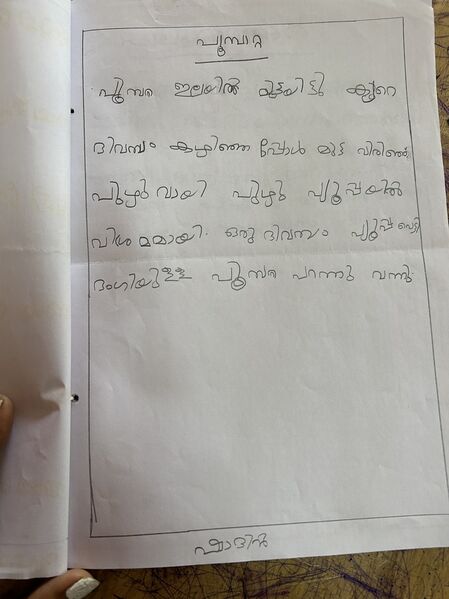 പൂമ്പാറ്റ
പൂമ്പറ്റ ഇലയിൽ മുട്ടയിട്ടു കുറെ
ദിവസം കഴിഞ്ഞ പ്പോൾ മുട്ട വിരിഞ്ഞു.
പുഴു വായി പുഴു പ്യൂപ്പയിൽ
വിശ്രമമായി. ഒരു ദിവസം പ്യൂപ്പ പൊട്ടി
ഭംഗിയുള്ള പൂമ്പറ്റ പറന്നു വന്നു.
ഷാദിൻ